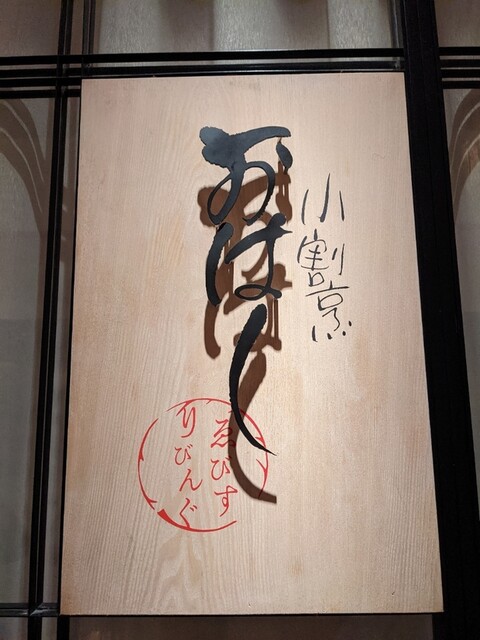 小割烹
おはし
ゑびす
りびんぐ